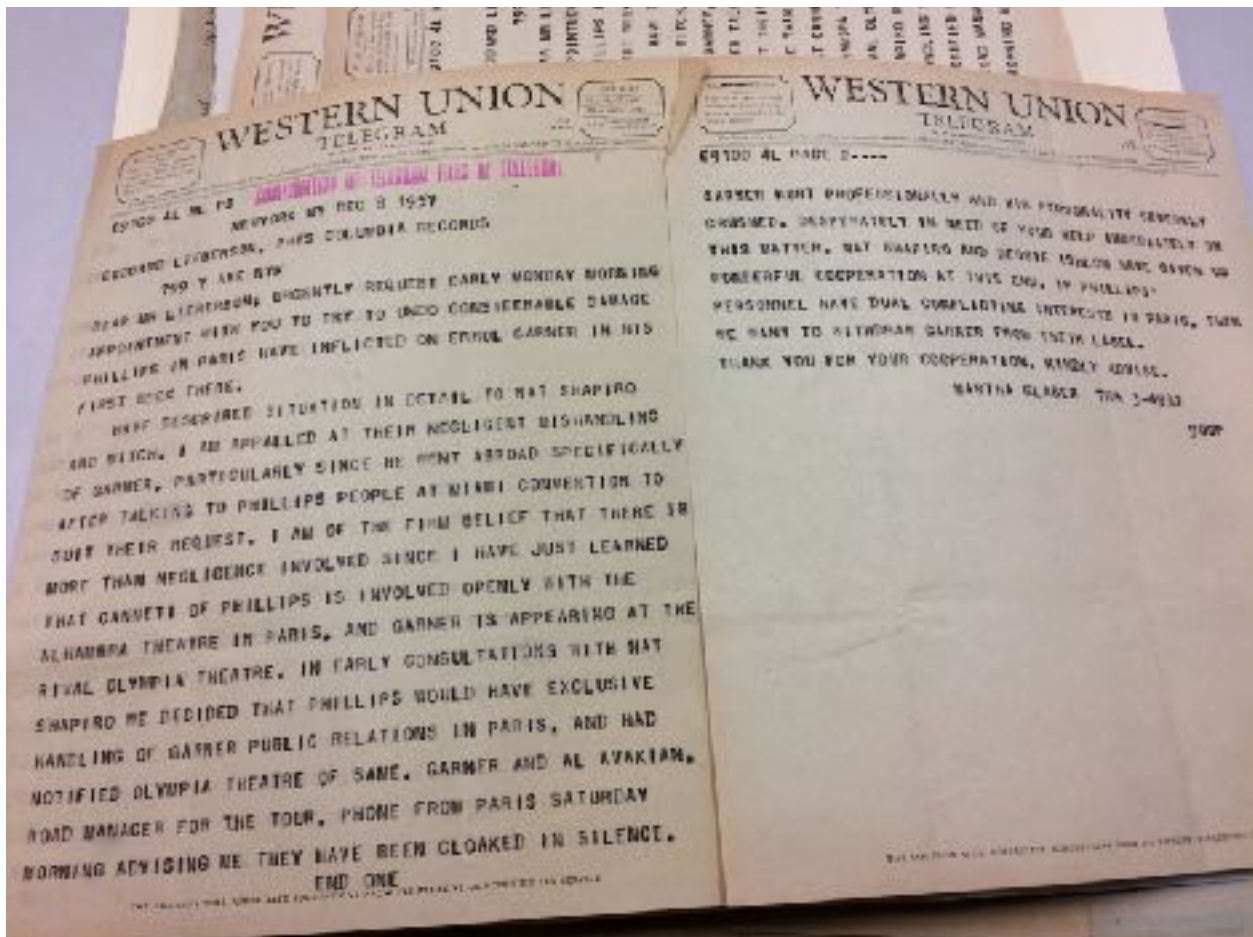 WESTERN UNION
TELEGRAM
CONFIRMATION OF TELEGRAM
NEWYORK NY DEC 8 1957
GODDARD LIEBERSON, PRES COLUMBIA RECORDS
799 7 AVE NYK
DEAR MR LIEBERSON, URGENTLY REQUEST EARLY MONDAY MORNING
APPOINTMENT WITH YOU TO TRY TO UNDO CONSIDERABLE DAMAGE
PHILLIPS IN PARIS HAVE INFLICTED ON ERROL GARNER IN HIS
FIRST WEEK THERE.
HAVE DESCRIBED SITUATION IN DETAIL TO NAT SHAPIRO
AND MITCH. I AM APPALLED AT THEIR NEGLIGENT MISHANDLING
OF GARNER, PARTICULARLY SINCE HE WENT ABROAD SPECIFICALLY
AFTER TALKING TO PHILLIPS PEOPLE AT MIAMI CONVENTION TO
SUIT THEIR REQUEST. I AM OF THE FIRM BELIEF THAT THERE IS
MORE THAN NEGLIGENCE INVOLVED SINCE I HAVE JUST LEARNED
THAT CANNETI OF PHILLIPS IS INVOLVED OPENLY WITH THE
ALHAMBRA THEATRE IN PARIS, AND GARNER IS APPEARING AT THE
RIVAL OLYMPIA THEATRE. IN EARLY CONSULTATIONS WITH NAT
SHAPIRO WE DECIDED THAT PHILLIPS WOULD HAVE EXCLUSIVE
HANDLING OF GARNER PUBLIC RELATIONS IN PARIS, AND HAD
NOTIFIED OLYMPIA THEATRE OF SAME. GARNER AND AL AVAKIAN,
ROAD MANAGER FOR THE TOUR, PHONE FROM PARIS SATURDAY
MORNING ADVISING ME THEY HAVE BEEN CLOAKED IN SILENCE.
END ONE
WESTERN UNION
TELEGRAM
E9700 AL PAGE 2----
GARNER HURT PROFESSIONALLY AND HIS PERSONALITY SEVERELY
CRUSHED. DESPERATELY IN NEED OF YOUR HELP IMMEDIATELY ON
THIS MATTER. NAT SHAPIRO AND GEORGE AVAKIAN HAVE GIVEN US
WONDERFUL COOPERATION AT THIS END. IF PHILLIPS'
PERSONNEL HAVE DUAL CONFLICTING INTERESTS IN PARIS, THEN
WE WANT TO WITHDRAW GARNER FROM THEIR LABEL.
THANK YOU FOR YOUR COOPERATION. KINDLY ADVISE.
MARTHA GLASER